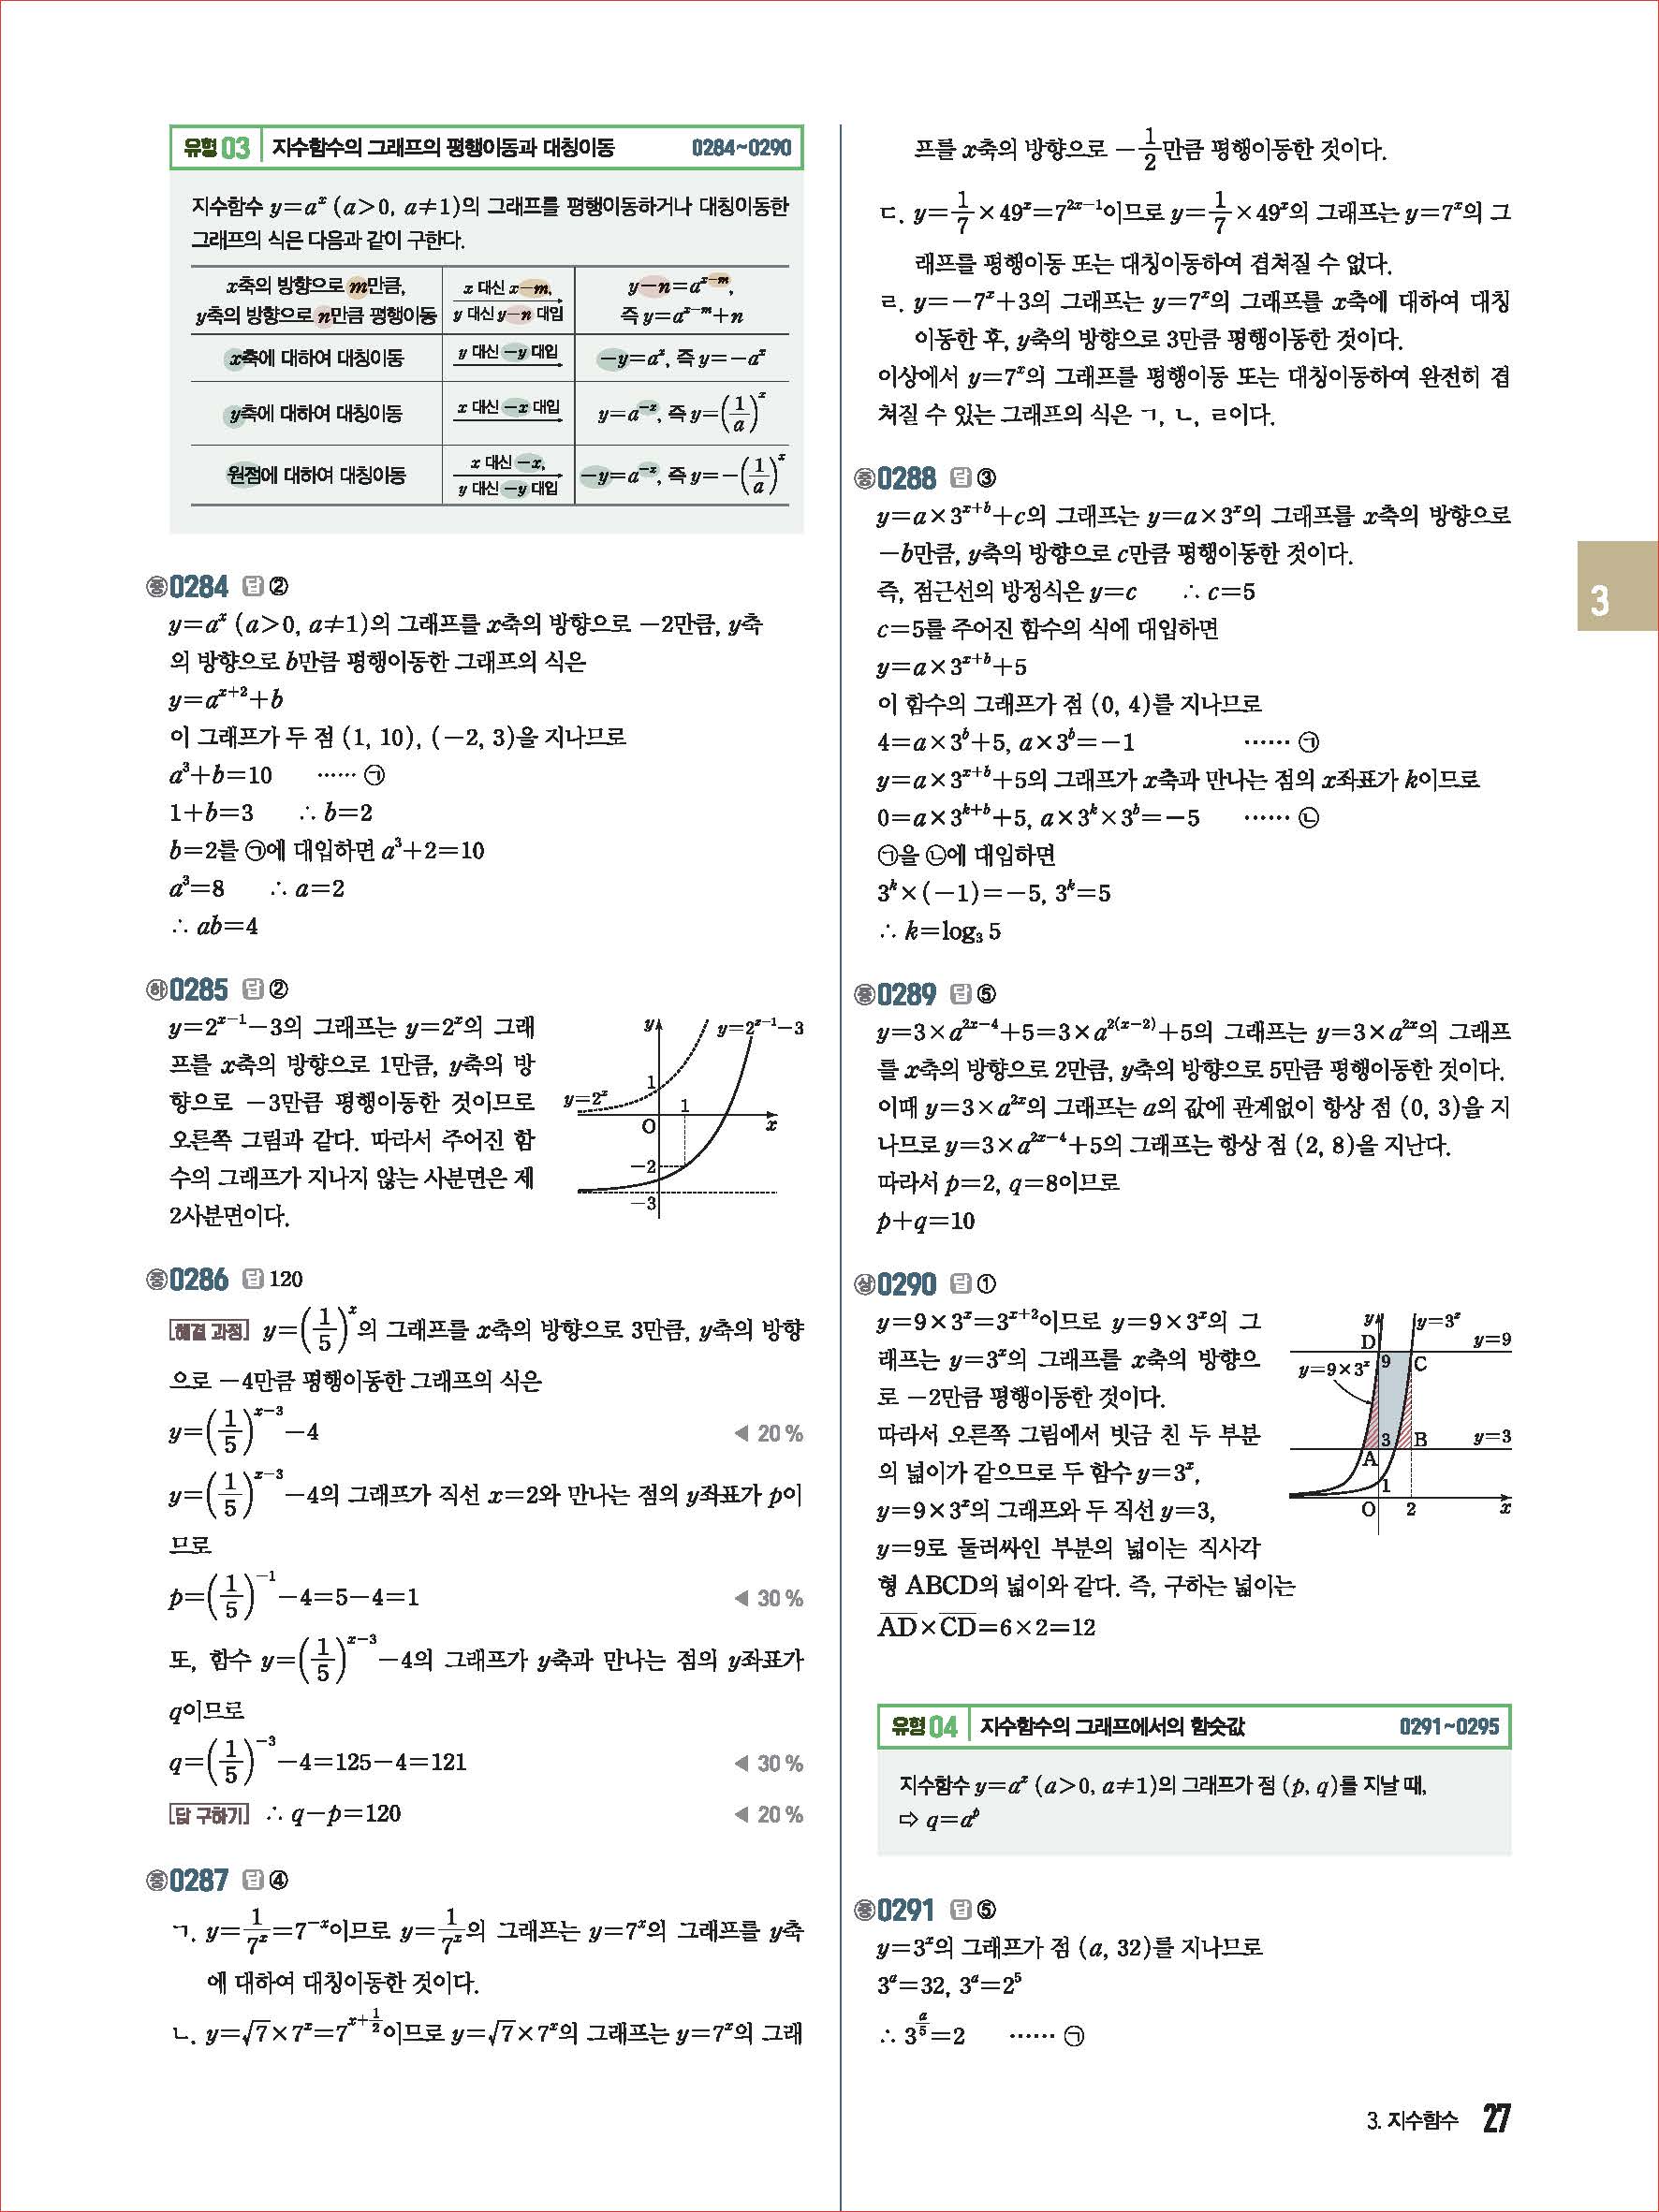 유형 03 지수함수의 그래프의 평행이동과 대칭이동 0284~0290
지수함수 y=aˣ (a>0, a≠1)의 그래프를 평행이동하거나 대칭이동한
그래프의 식은 다음과 같이 구한다.
x축의 방향으로 m만큼, y축의 방향으로 n만큼 평행이동 | x 대신 x-m, y 대신 y-n 대입 | y-n=a^(x-m), 즉 y=a^(x-m)+n
x축에 대하여 대칭이동 | y 대신 -y 대입 | -y=aˣ, 즉 y=-aˣ
y축에 대하여 대칭이동 | x 대신 -x 대입 | y=a^(-x), 즉 y=(1/a)ˣ
원점에 대하여 대칭이동 | x 대신 -x, y 대신 -y 대입 | -y=a^(-x), 즉 y=-(1/a)ˣ
중 0284 답 ②
y=aˣ (a>0, a≠1)의 그래프를 x축의 방향으로 -2만큼, y축
의 방향으로 b만큼 평행이동한 그래프의 식은
y=a^(x+2)+b
이 그래프가 두 점 (1, 10), (-2, 3)을 지나므로
a³+b=10 …… ㉠
1+b=3 ∴ b=2
b=2를 ㉠에 대입하면 a³+2=10
a³=8 ∴ a=2
∴ ab=4
하 0285 답 ②
y=2^(x-1)-3의 그래프는 y=2ˣ의 그래
프를 x축의 방향으로 1만큼, y축의 방
향으로 -3만큼 평행이동한 것이므로
오른쪽 그림과 같다. 따라서 주어진 함
수의 그래프가 지나지 않는 사분면은 제
2사분면이다.
y
y=2^(x-1)-3
1
y=2ˣ
1
O
x
-2
-3
중 0286 답 120
해결 과정 y=(1/5)ˣ의 그래프를 x축의 방향으로 3만큼, y축의 방향
으로 -4만큼 평행이동한 그래프의 식은
y=(1/5)^(x-3)-4 ◀ 20 %
y=(1/5)^(x-3)-4의 그래프가 직선 x=2와 만나는 점의 y좌표가 p이
므로
p=(1/5)^(-1)-4=5-4=1 ◀ 30 %
또, 함수 y=(1/5)^(x-3)-4의 그래프가 y축과 만나는 점의 y좌표가
q이므로
q=(1/5)^(-3)-4=125-4=121 ◀ 30 %
답 구하기 ∴ q-p=120 ◀ 20 %
중 0287 답 ④
ㄱ. y=1/7ˣ=7^(-x)이므로 y=1/7ˣ의 그래프는 y=7ˣ의 그래프를 y축
에 대하여 대칭이동한 것이다.
ㄴ. y=√7×7ˣ=7^(x+1/2)이므로 y=√7×7ˣ의 그래프는 y=7ˣ의 그래
프를 x축의 방향으로 -1/2만큼 평행이동한 것이다.
ㄷ. y=1/7×49ˣ=7^(2x-1)이므로 y=1/7×49ˣ의 그래프는 y=7ˣ의 그
래프를 평행이동 또는 대칭이동하여 겹쳐질 수 없다.
ㄹ. y=-7ˣ+3의 그래프는 y=7ˣ의 그래프를 x축에 대하여 대칭
이동한 후, y축의 방향으로 3만큼 평행이동한 것이다.
이상에서 y=7ˣ의 그래프를 평행이동 또는 대칭이동하여 완전히 겹
쳐질 수 있는 그래프의 식은 ㄱ, ㄴ, ㄹ이다.
중 0288 답 ③
y=a×3^(x+b)+c의 그래프는 y=a×3ˣ의 그래프를 x축의 방향으로
-b만큼, y축의 방향으로 c만큼 평행이동한 것이다.
즉, 점근선의 방정식은 y=c ∴ c=5
c=5를 주어진 함수의 식에 대입하면
y=a×3^(x+b)+5
이 함수의 그래프가 점 (0, 4)를 지나므로
4=a×3ᵇ+5, a×3ᵇ=-1 …… ㉠
y=a×3^(x+b)+5의 그래프가 x축과 만나는 점의 x좌표가 k이므로
0=a×3^(k+b)+5, a×3ᵏ×3ᵇ=-5 …… ㉡
㉠을 ㉡에 대입하면
3ᵏ×(-1)=-5, 3ᵏ=5
∴ k=log₃ 5
중 0289 답 ⑤
y=3×a^(2x-4)+5=3×a^(2(x-2))+5의 그래프는 y=3×a^(2x)의 그래프
를 x축의 방향으로 2만큼, y축의 방향으로 5만큼 평행이동한 것이다.
이때 y=3×a^(2x)의 그래프는 a의 값에 관계없이 항상 점 (0, 3)을 지
나므로 y=3×a^(2x-4)+5의 그래프는 항상 점 (2, 8)을 지난다.
따라서 p=2, q=8이므로
p+q=10
상 0290 답 ①
y=9×3ˣ=3^(x+2)이므로 y=9×3ˣ의 그
래프는 y=3ˣ의 그래프를 x축의 방향으
로 -2만큼 평행이동한 것이다.
따라서 오른쪽 그림에서 빗금 친 두 부분
의 넓이가 같으므로 두 함수 y=3ˣ,
y=9×3ˣ의 그래프와 두 직선 y=3,
y=9로 둘러싸인 부분의 넓이는 직사각
형 ABCD의 넓이와 같다. 즉, 구하는 넓이는
A̅D̅×C̅D̅=6×2=12
y
y=3ˣ
D
y=9
9
C
y=9×3ˣ
3
B
y=3
A
1
O
2
x
유형 04 지수함수의 그래프에서의 함숫값 0291~0295
지수함수 y=aˣ (a>0, a≠1)의 그래프가 점 (p, q)를 지날 때,
⇨ q=aᵖ
중 0291 답 ⑤
y=3ˣ의 그래프가 점 (a, 32)를 지나므로
3ᵃ=32, 3ᵃ=2⁵
∴ 3^(a/5)=2 …… ㉠
3
3. 지수함수 27